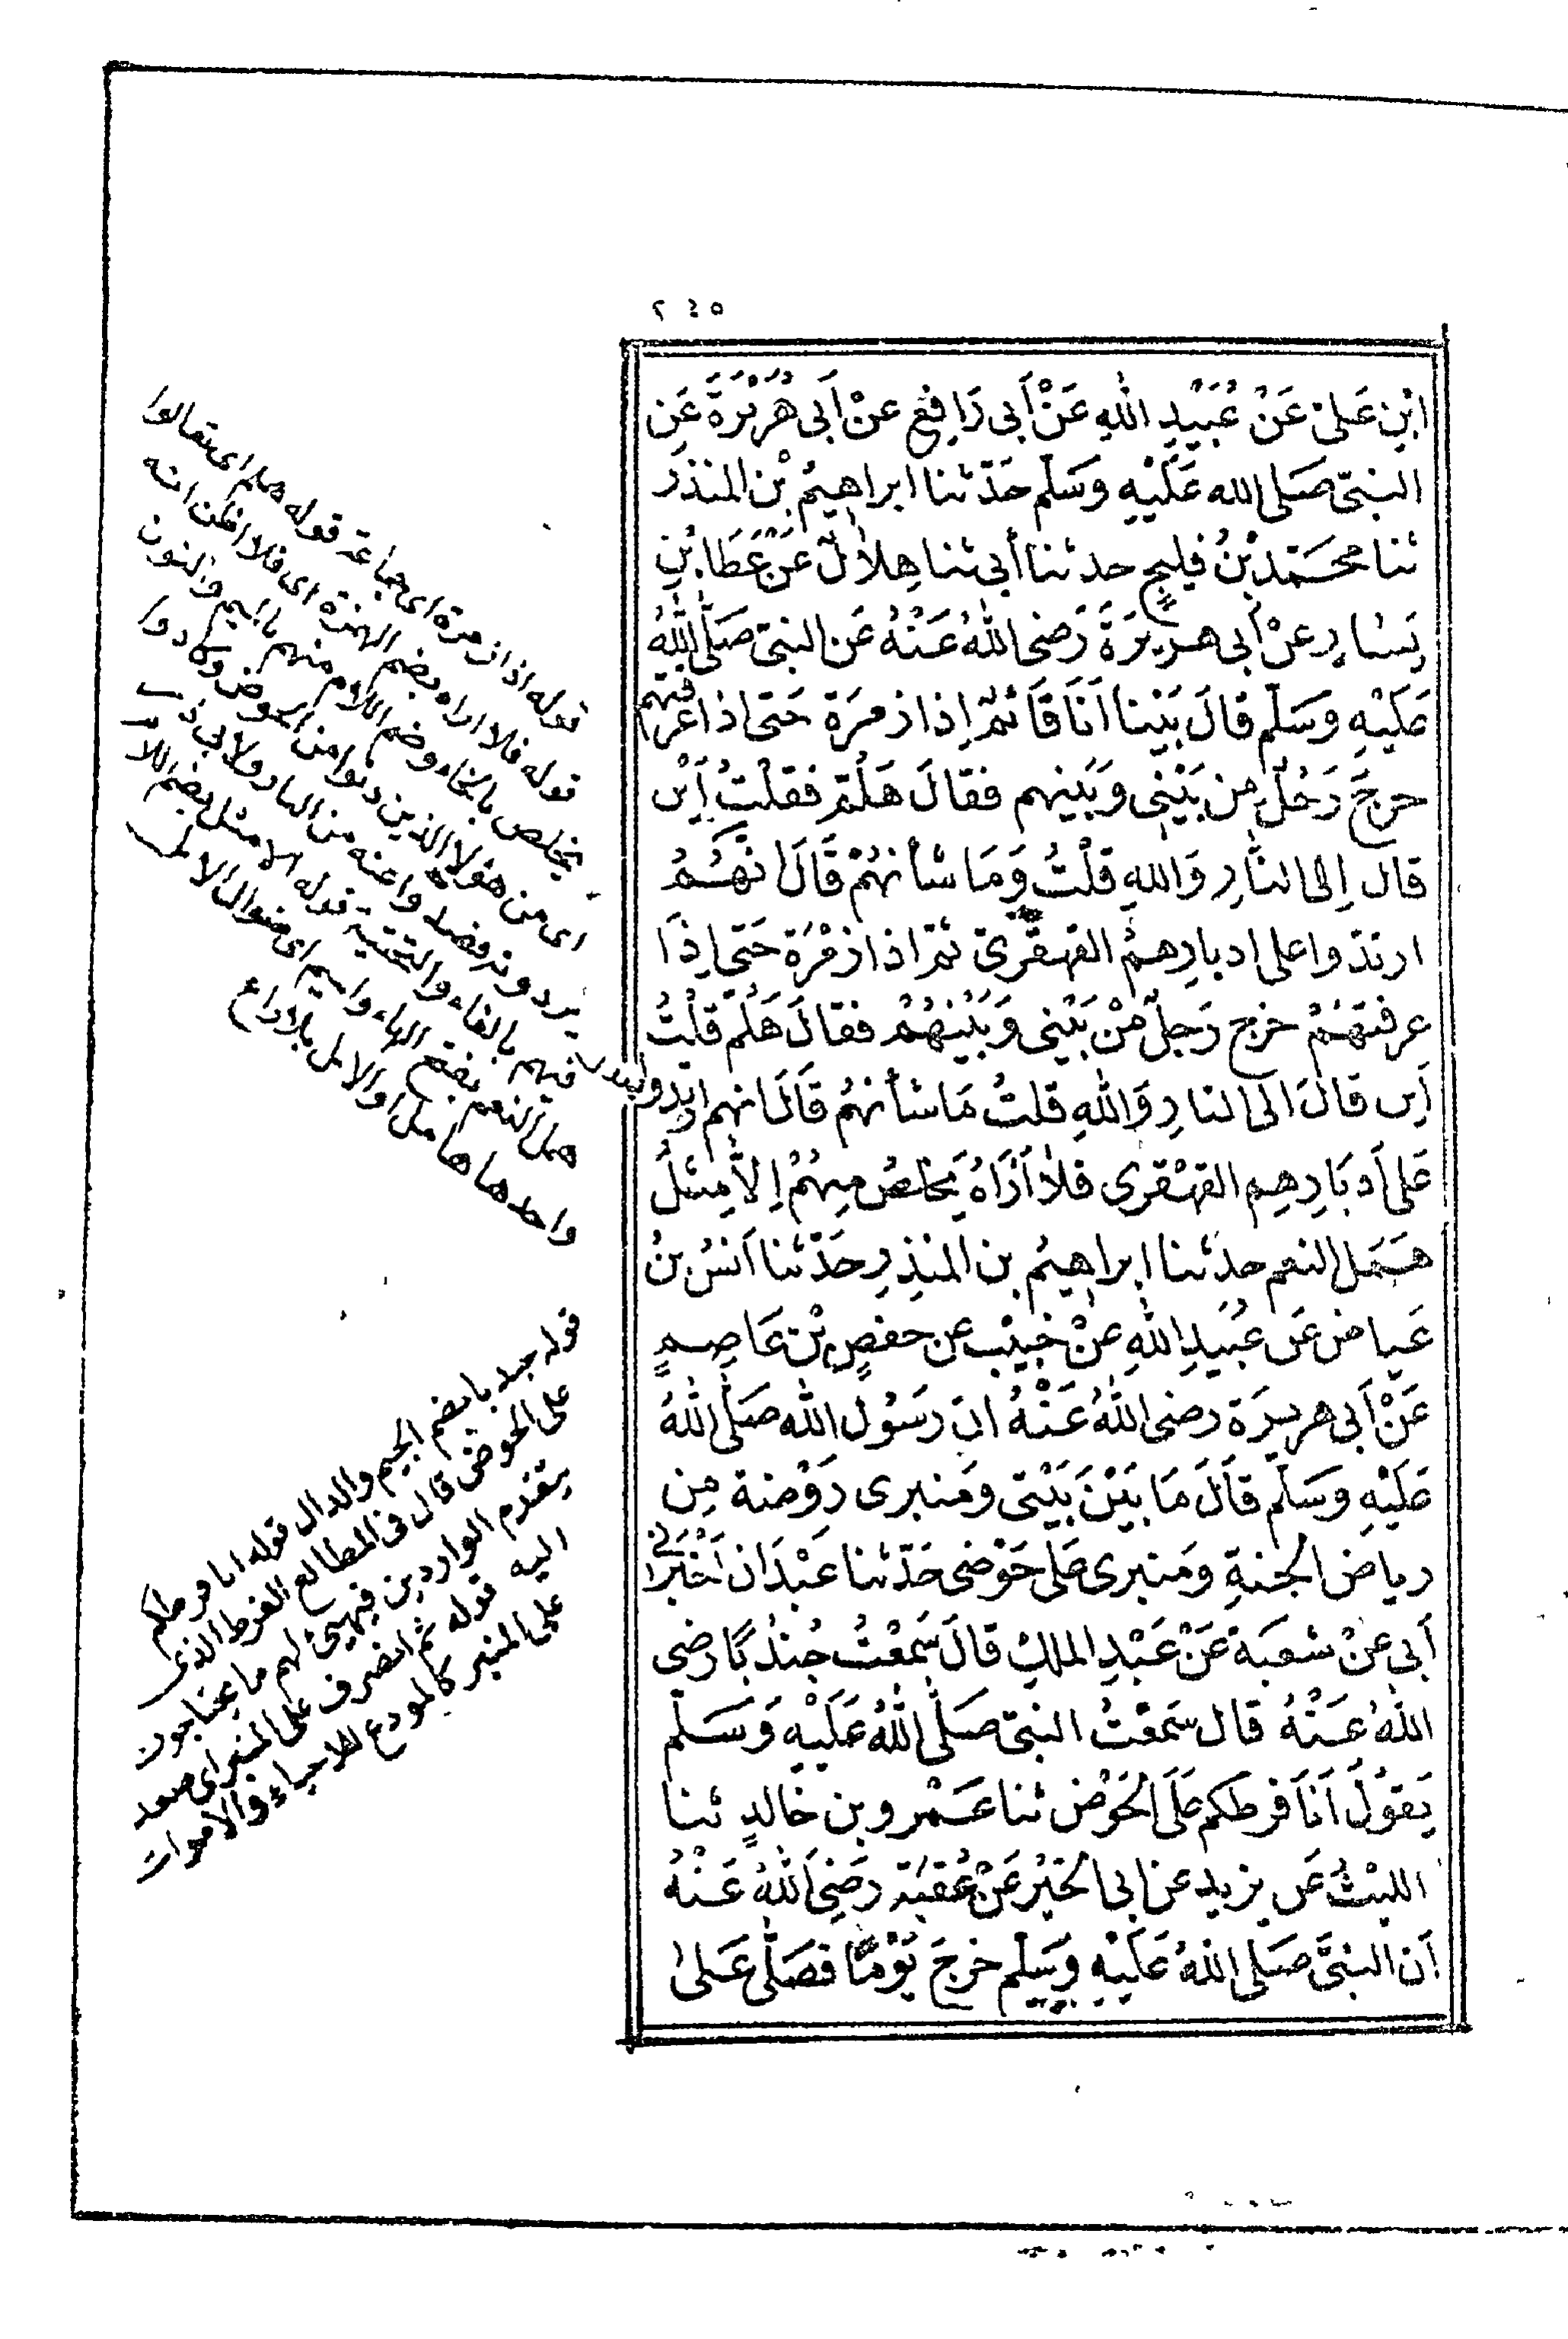 ٢٤٥
ابْنِ عَلِيّ عَنْ عُبَيْدِ اللّٰهِ عَنْ أَبِي رَافِعٍ عَنْ أَبِي هُرَيْرَةَ عَنِ
النبيّ صَلى الله عَلَيْهِ وَسَلّم حَدّثنا ابراهِيمُ بْن المنذر
ثنا محمّد بْنُ فليحٍ حدثنا أبي ثنا هِلَالٌ عَنْ عَطَا بْنِ
يَسَارٍ عَنْ أبي هريرَةَ رَضي اللّٰهُ عَنْهُ عَن النبيّ صَلَّى اللّٰهُ
عَلَيْهِ وَسَلّم قالَ بَيْنا اَنَا قَائمٌ اِذا زمرَة حَتى اذا عرفتهم
خرجَ رَجُلٌ مِن بَيْنِي وَبَيْنِهم فقالَ هَلُمّ فقلْتُ أَيْن
قال اِلى النَّارِ وَاللهِ قلْتُ وَمَا شأنهُمْ قَالَ انَّهُمُ
ارتدّوا على ادبارِهِمُ القهقَرىٰ ثمّ اذا زمْرَة حَتى اِذَا
عرفتهُمْ خرج رَجلٌ مِنْ بَيْنِي وَبَيْنِهُمْ فقالَ هَلُمَّ قلْتُ
أين قالَ الى النارِ وَاللّٰهِ قلتُ مَا شأنهُم قَالَ انهم ارتدوا بعدك
عَلى أَدبَارِهِم القهْقرى فلا أرَاهُ يَخلصُ مِنهُمْ اِلَّا مِثلُ
هَمَل النعم حدثنا ابراهِيمُ بن المنذِرِ حَدّثنا اَنسُ بنُ
عَياض عَن عُبَيدِ اللّٰهِ عَنْ خبيْب عن حفصِ بْن عَاصِمٍ
عَنْ أبي هريرَة رضي اللّٰهُ عَنْهُ انّ رَسُول اللّٰه صَلَّى اللّٰهُ
عَلَيْهِ وَسَلّم قالَ مَا بَيْنَ بَيْتي وَمنبرى رَوْضة مِن
رياض الجنةِ وَمنبرى عَلى حَوْضى حَدّثنا عَبْدَان اَخْبَرَني
أبي عَنْ شعبَة عَنْ عَبْدِ الملكِ قالَ سَمعْتُ جُندُبًا رضي
اللّٰهُ عَنْهُ قال سَمعْتُ النبيّ صَلَّى اللّٰهُ عَلَيْهِ وَسَلّم
يَقوُلُ أَنَا فرطكم عَلَى الحَوْض ثنا عَمْرو بن خالدٍ ثنا
الليْثُ عَن يزيد عن ابى الخيْرُ عَنْ عُقبَة رَضِيَ اللّٰهُ عَنْهُ
أن النبيَّ صَلى اللّٰهُ عَلَيْهِ وَسَلّم خرجَ يَوْمًا فصَلَّى عَلىٰ
قوله اذا زمرة اى جماعة قوله هلم اى تعالوا
قوله فلا اراه بضم الهمزة اى فلا اظن انه
يخلص بالخاء وضم اللام منهم بالميم والنون
اى من هؤلاء الذين دنوا من الحوض وكادوا
يردونه فصدوا عنه من النار ولابى ذر
فيهم بالفاء والتحتية قوله الا مثل بضم اللام
همل النعم بفتح الهاء والميم اى ضوال الابل
واحدها هامل او الابل بلا راع
قوله جندبا بضم الجيم والدال قوله انا فرطكم
على الحوض قال فى المطالع الفرط الذى
يتقدم الواردين فيهيئ لهم ما يحتاجون
اليه قوله ثم انصرف على المنبر اى صعد
على المنبر كالمودع للاحياء والاموات